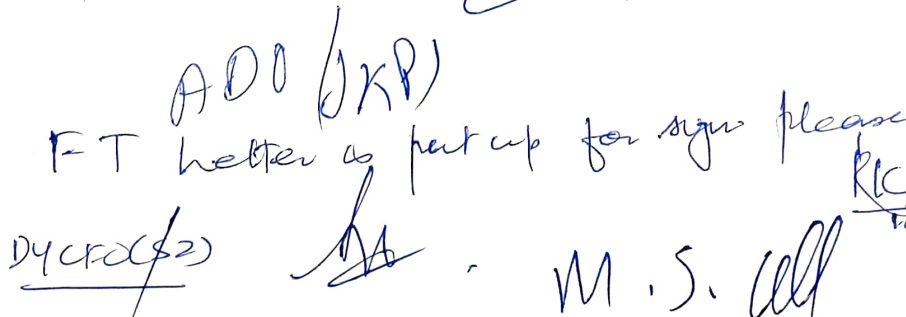 ADO (JKP)
FT Letter is put up for sign please
DYCFO(S2)
M.S. Cell